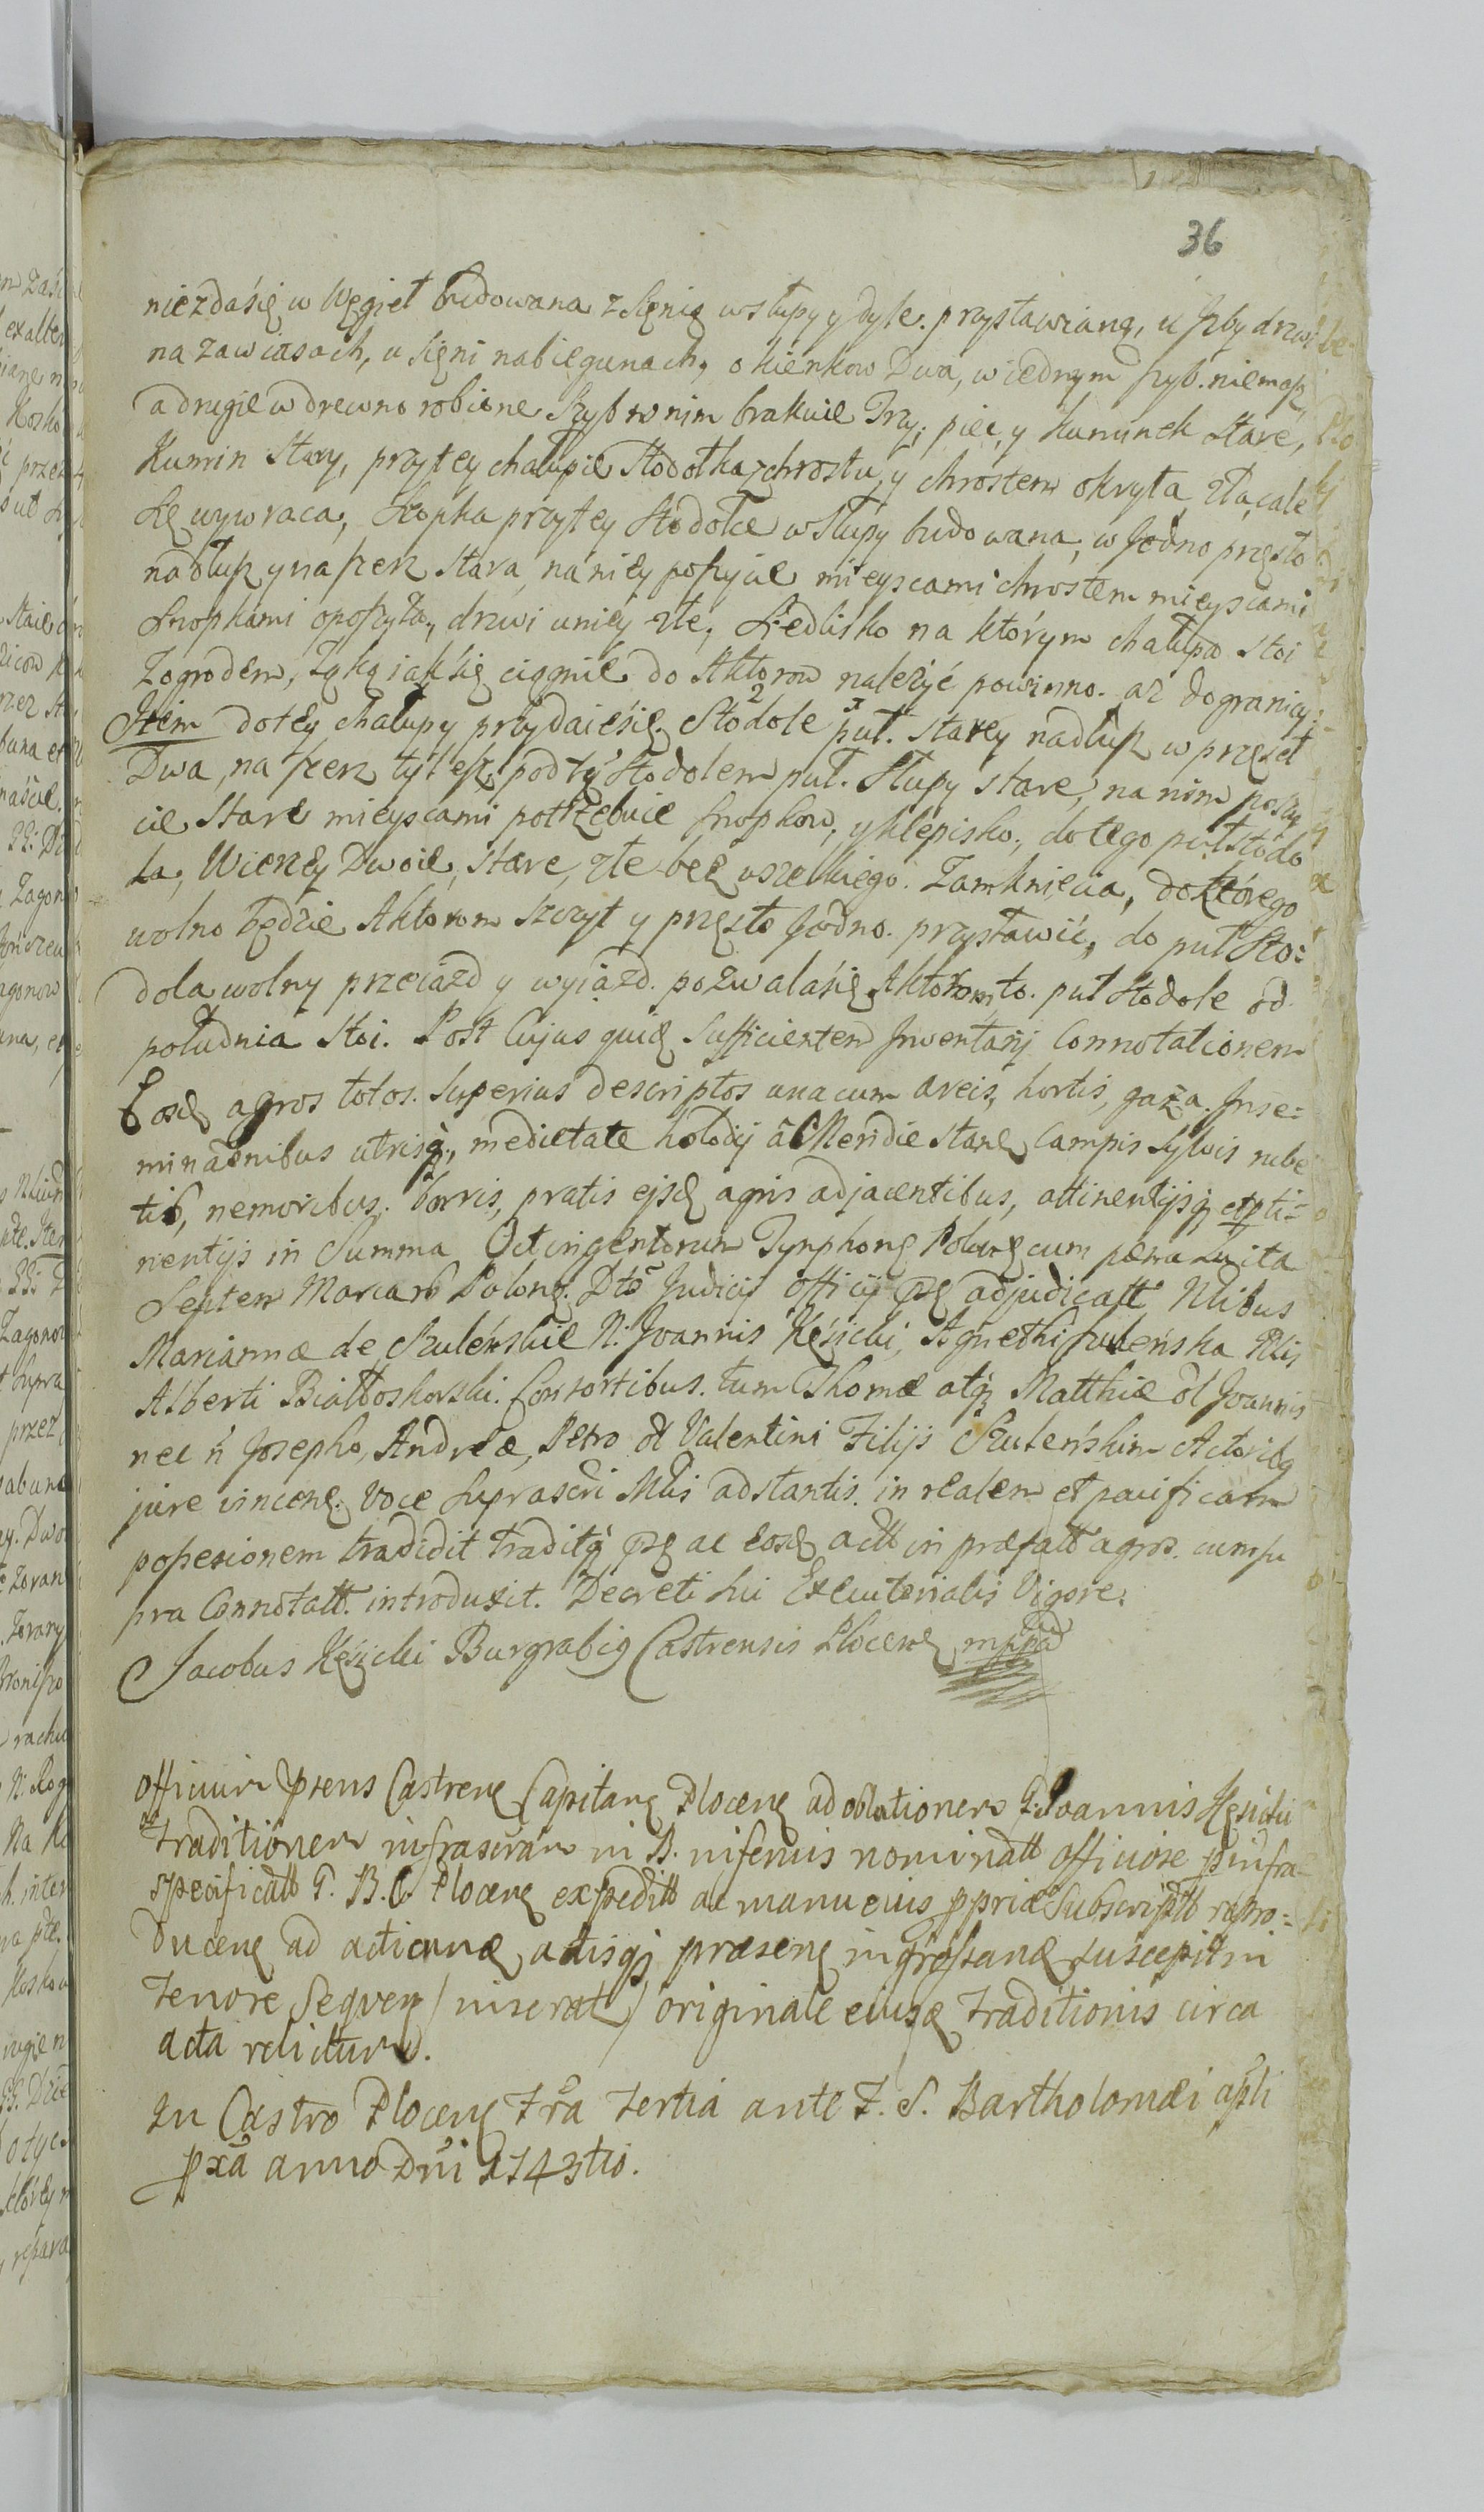 36
niezdaśię w Węgieł budowana z Sięnią w słupy y dyle. przystawianą, u Izby drzwi
na zawiasach, u Sięni nabiegunach, okienkow Dwa, w iednym szyb. niemasz
a drugie w drewno robione Szyb w nim brakuie Trzy, piec, y Kuminek Stare,
Kumin Stary, przy tey chałupie Stodołka z chrostu, y chrostem okryta zła, cale
Się wywraca, Szopka przy tey Stodołce w Słupy budowana, w Jedno przęsło
nadłusz y naszerz stara, na niey poszycie mieyscami chrostem mieyscami
Snopkami oposzyta, drzwi u niey złe, Siedlisko na którym chałupa stoi
Zogrodem, Łąką iak się ciągnie do Aktorow należyć powinno. aż do granicy:
Item do tey chałupy przydaieśię Stodole puł. starey nadłusz w przęseł
Dwa, na szerz tyleż, pod tą Stodołem puł. Słupy stare, na nim poszy
cie Stare mieyscami potrzebuie Snopkow, y klepisko, do tego puł stodo
ła, Wierzey Dwoie, Stare, złe bez wszelkiego. Zamknięcia, do którego
wolno będzie Aktorom Szczyt y przęsło Jedno. przystawić, do puł Sto:
doła wolny przeiazd y wyiazd. pozwalaśię Aktorom, to. puł Stodole od
południa Stoi. Post Cujus quid Sufficientem Inventarij Connotationem
Eosd agros totos. Superius descriptos unacum areis, hortis, gaza. Inse=
minaonibus utrisq, medietate holodij a Meridie stane Campis Sylvis rube
tib, nemoribus. borris, pratis ejsd agris adjacentibus, attinentijsq et pti=
nentijs in Summa Octingentorum Tynphone Polone cum pæna Luita
Septem Marcarb Polone. Dto Judicij Officij adjudicatt Nlibus
Mariannæ de Szuleńskie N: Joannis Kęsicki, Agnethi Szuleńska Nlis
Alberti Białłoskorski. Consortibus. tum Thomæ atq Matthiæ ol Joannis
nec n Josepho, Andreæ, Petro ol Valentini Filijs Szuleńskim Actoribq
jure vincene. Voce Suprascri Mlis adstantis. in realem et pacificam
possesionem tradidit traditq ac eosd actt in præfatt agros. cum su
pra Connotatt. introduxit. Decreti sui Executorialis Vigore.
Jacobus Kęsicki Burgrabig Castrensis Plocene mppa
Officium Prens Castrene Capitane Plocene ad oblationem G. Joannis Kęsicki
traditionem infrascram in B. inferius nominatt officiose p infra=
specificatt G. B. C. Plocene expeditt ac manu eius ppria Subscriptt repro:=
ducene ad acticanæ, actisqj præsene ingrossanæ suscepit in
tenore Sequen / inserat / originale eiusd traditionis circa
acta relictum.
In Castro Plocene Fra tertia ante F. S. Bartholomæi apli
pxa anno Dni 1743tio.